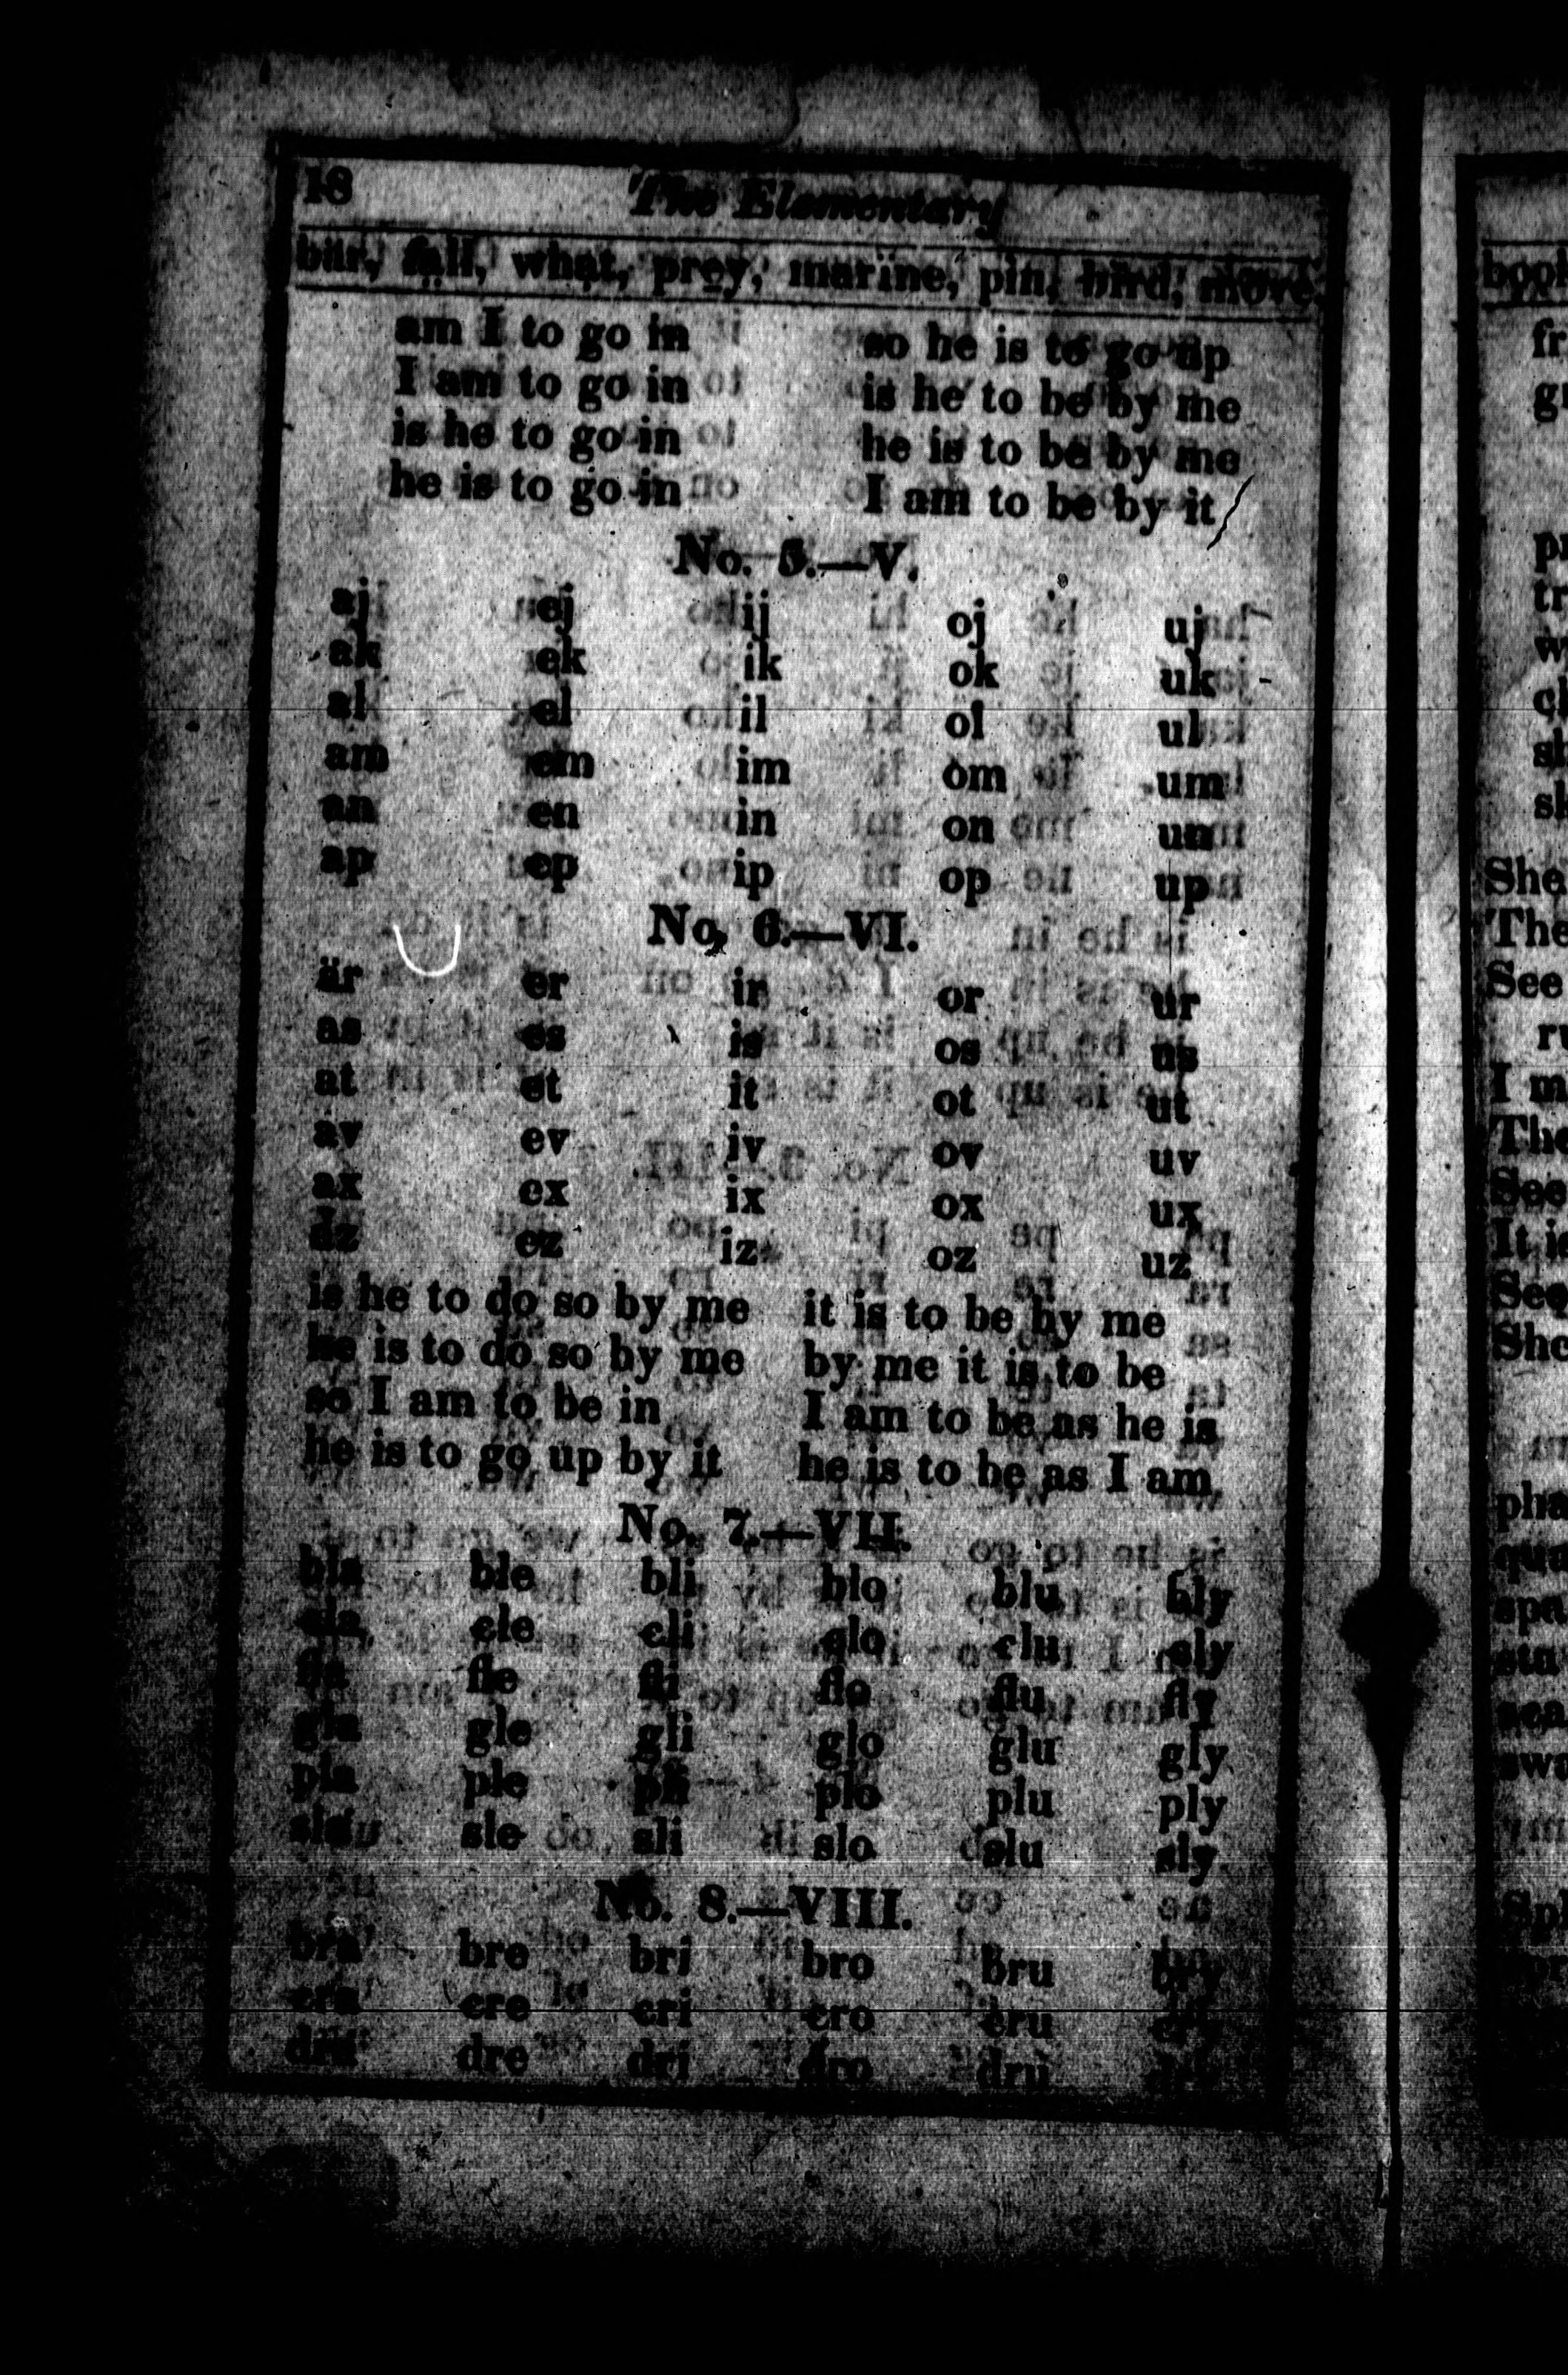 18 The Elementary
bär, fạll, whạt, prey, marïne, pin, bïrd, möve,
am I to go in so he is to go up
I am to go in is he to be by me
is he to go in he is to be by me
he is to go in I am to be by it
No. 5.—V.
aj ej ij oj uj
ak ek ik ok uk
al el il ol ul
am em im om um
an en in on un
ap ep ip op up
No. 6.—VI.
är er ir or ur
as es is os us
at et it ot ut
av ev iv ov uv
ax ex ix ox ux
az ez iz oz uz
is he to do so by me it is to be by me
he is to do so by me by me it is to be
so I am to be in I am to be as he is
he is to go up by it he is to be as I am
No. 7.—VII.
bla ble bli blo blu bly
cla cle cli clo clu cly
fla fle fli flo flu fly
gla gle gli glo glu gly
pla ple pli plo plu ply
sla sle sli slo slu sly
No. 8.—VIII.
bra bre bri bro bru bry
cra cre cri cro cru cry
dra dre dri dro dru dry
She
The
See
I m
The
See
It is
See
She